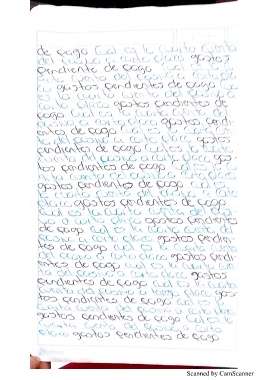 de pago Cual es la cuarta cuenta
del pasivo a corto plazo gastos
pendientes de pago Cual es la
cuenta del pasivo a corto pla
zo gastos pendientes de pago Cual
es la cuarta cuenta del pasivo a
corto plazo gastos pendientes de
pago Cual es la cuarta cuenta del
pasivo a corto plazo gastos pendi-
entes de pago Cual es la cuarta
del pasivo a corto plazo gastos
pendientes de pago Cual es la cuarta
cuenta del pasivo a corto plazo gas-
tos pendientes de pago
cuenta del pasivo a corto plazo
gastos pendientes de pago Cual es
la cuarta cuenta del pasivo a corto
plazo gastos pendientes de pago
Cual es la cuarta cuenta del pasi
vo a corto plazo gastos pendientes
de pago Cual es la cuarta cuenta del
pasivo a corto plazo gastos pendien-
tes de pago Cual es la cuarta cuenta
del pasivo a corto plazo gastos pendi-
entes de pago Cual es la cuarta cuen
ta del pasivo a corto plazo gastos
pendientes de pago Cual es la cuarta
cuenta del pasivo a corto plazo gas-
tos pendientes de pago Cual es la
cuarta cuenta del pasivo a corto plazo
gastos pendientes de pago Cual es la
cuarta cuenta del pasivo a corto
plazo gastos pendientes de pago
Scanned by CamScanner